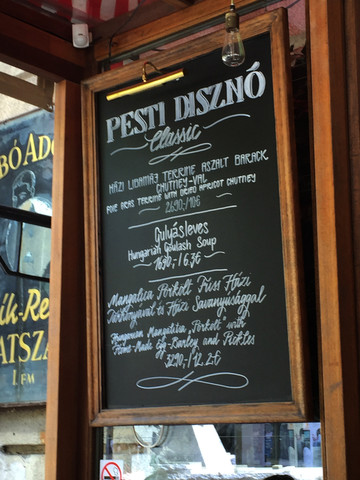 PESTI DISZNÓ
Classic
HÁZI LIBAMÁJ TERRINE ASZALT BARACK
CHUTNEY-VAL
FOIE GRAS TERRINE WITH DRIED APRICOT CHUTNEY
2690,-/10€
Gulyásleves
Hungarian Goulash Soup
1690,-/6.3€
Mangalica Pörkölt Friss Házi
Tarhonyával és Házi Savanyúsággal
Hungarian Mangalitsa „Pörkölt" with
Home-Made Egg-Barley and Pickles
3290,-/12.2€
BÓ ADO
ik-Re
ATSZA
I. EM